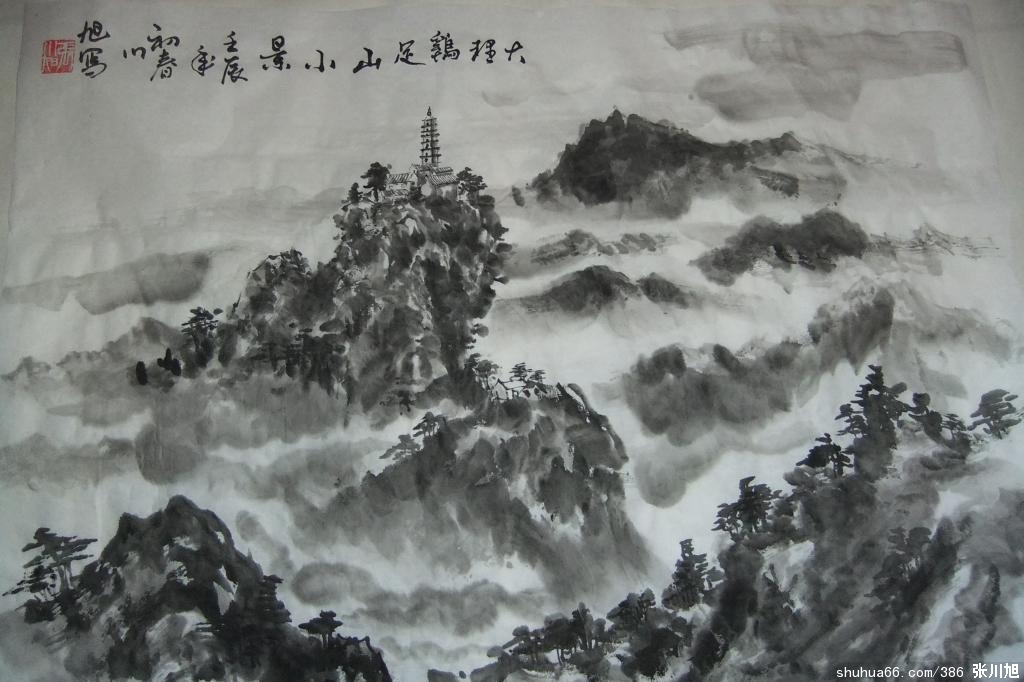 大理鷄足山小景
壬辰
年
初春
川
旭寫
shuhua66.com/386 张川旭